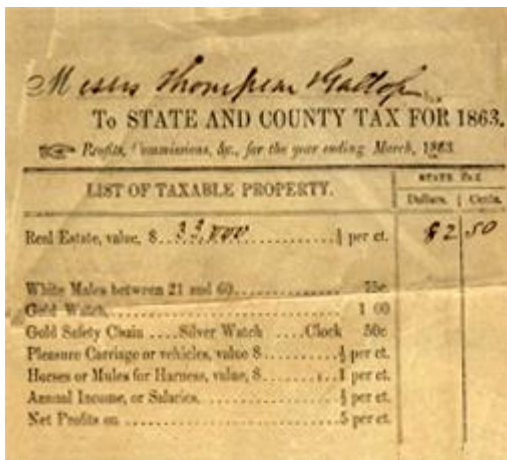 Messrs Thompson & Gallop
To STATE AND COUNTY TAX FOR 1863.
Profits, Commissions, &c., for the year ending March, 1863
LIST OF TAXABLE PROPERTY. STATE TAX
Dollars. Cents.
Real Estate, value, $ 33,000 ¼ per ct. 82 50
White Males between 21 and 60 75c
Gold Watch 1 00
Gold Safety Chain ....Silver Watch ....Clock 50c
Pleasure Carriage or vehicles, value $ per ct.
Horses or Mules for Harness, value, $ 1 per ct.
Annual Income, or Salaries. per ct.
Net Profits on 5 per ct.